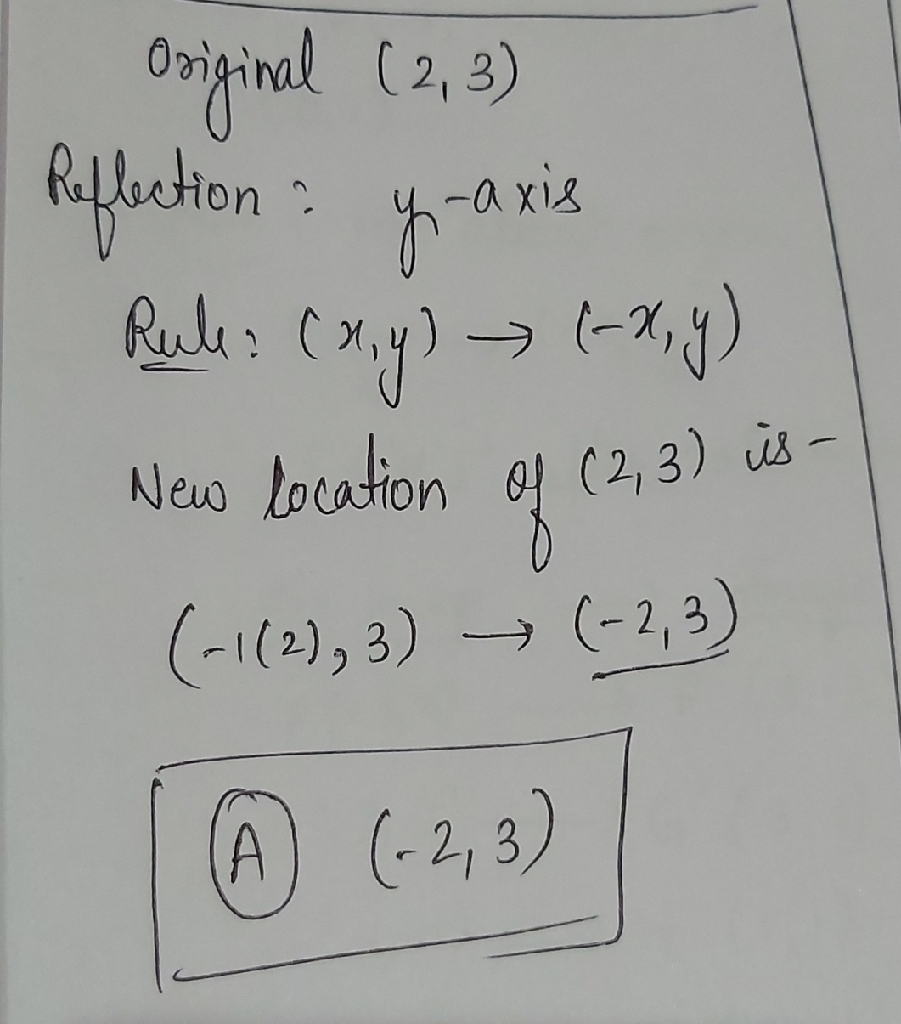 Original (2, 3)
Reflection : y-axis
Rule: (x, y) → (-x, y)
New location of (2, 3) is -
(-1(2), 3) → (-2, 3)
A (-2, 3)